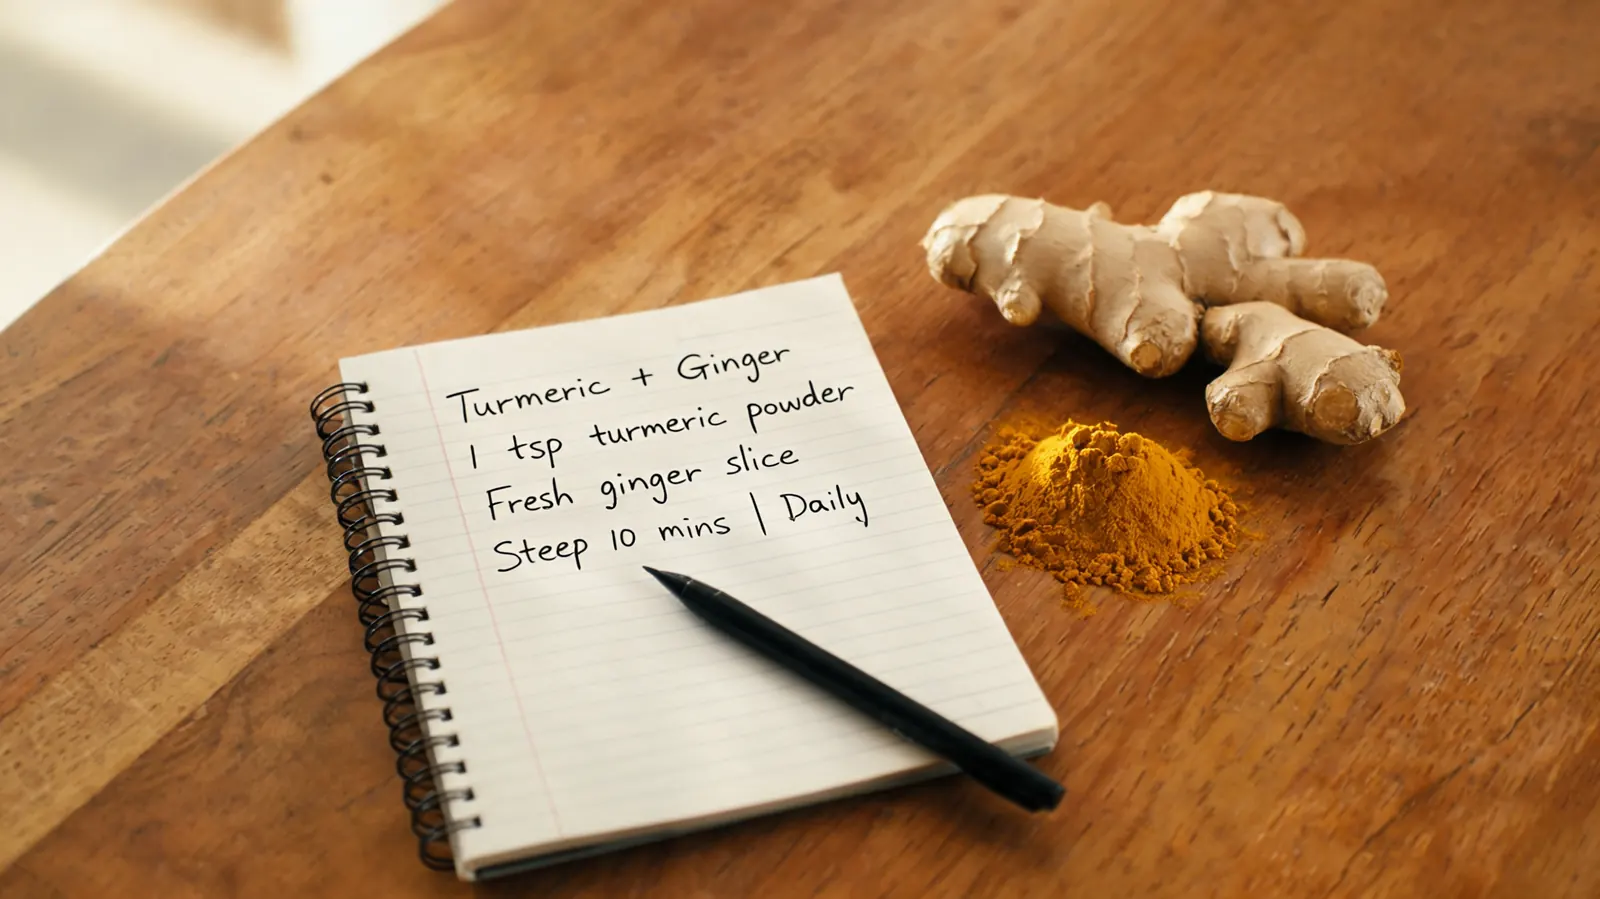 Turmeric + Ginger
1 tsp turmeric powder
Fresh ginger slice
Steep 10 mins | Daily